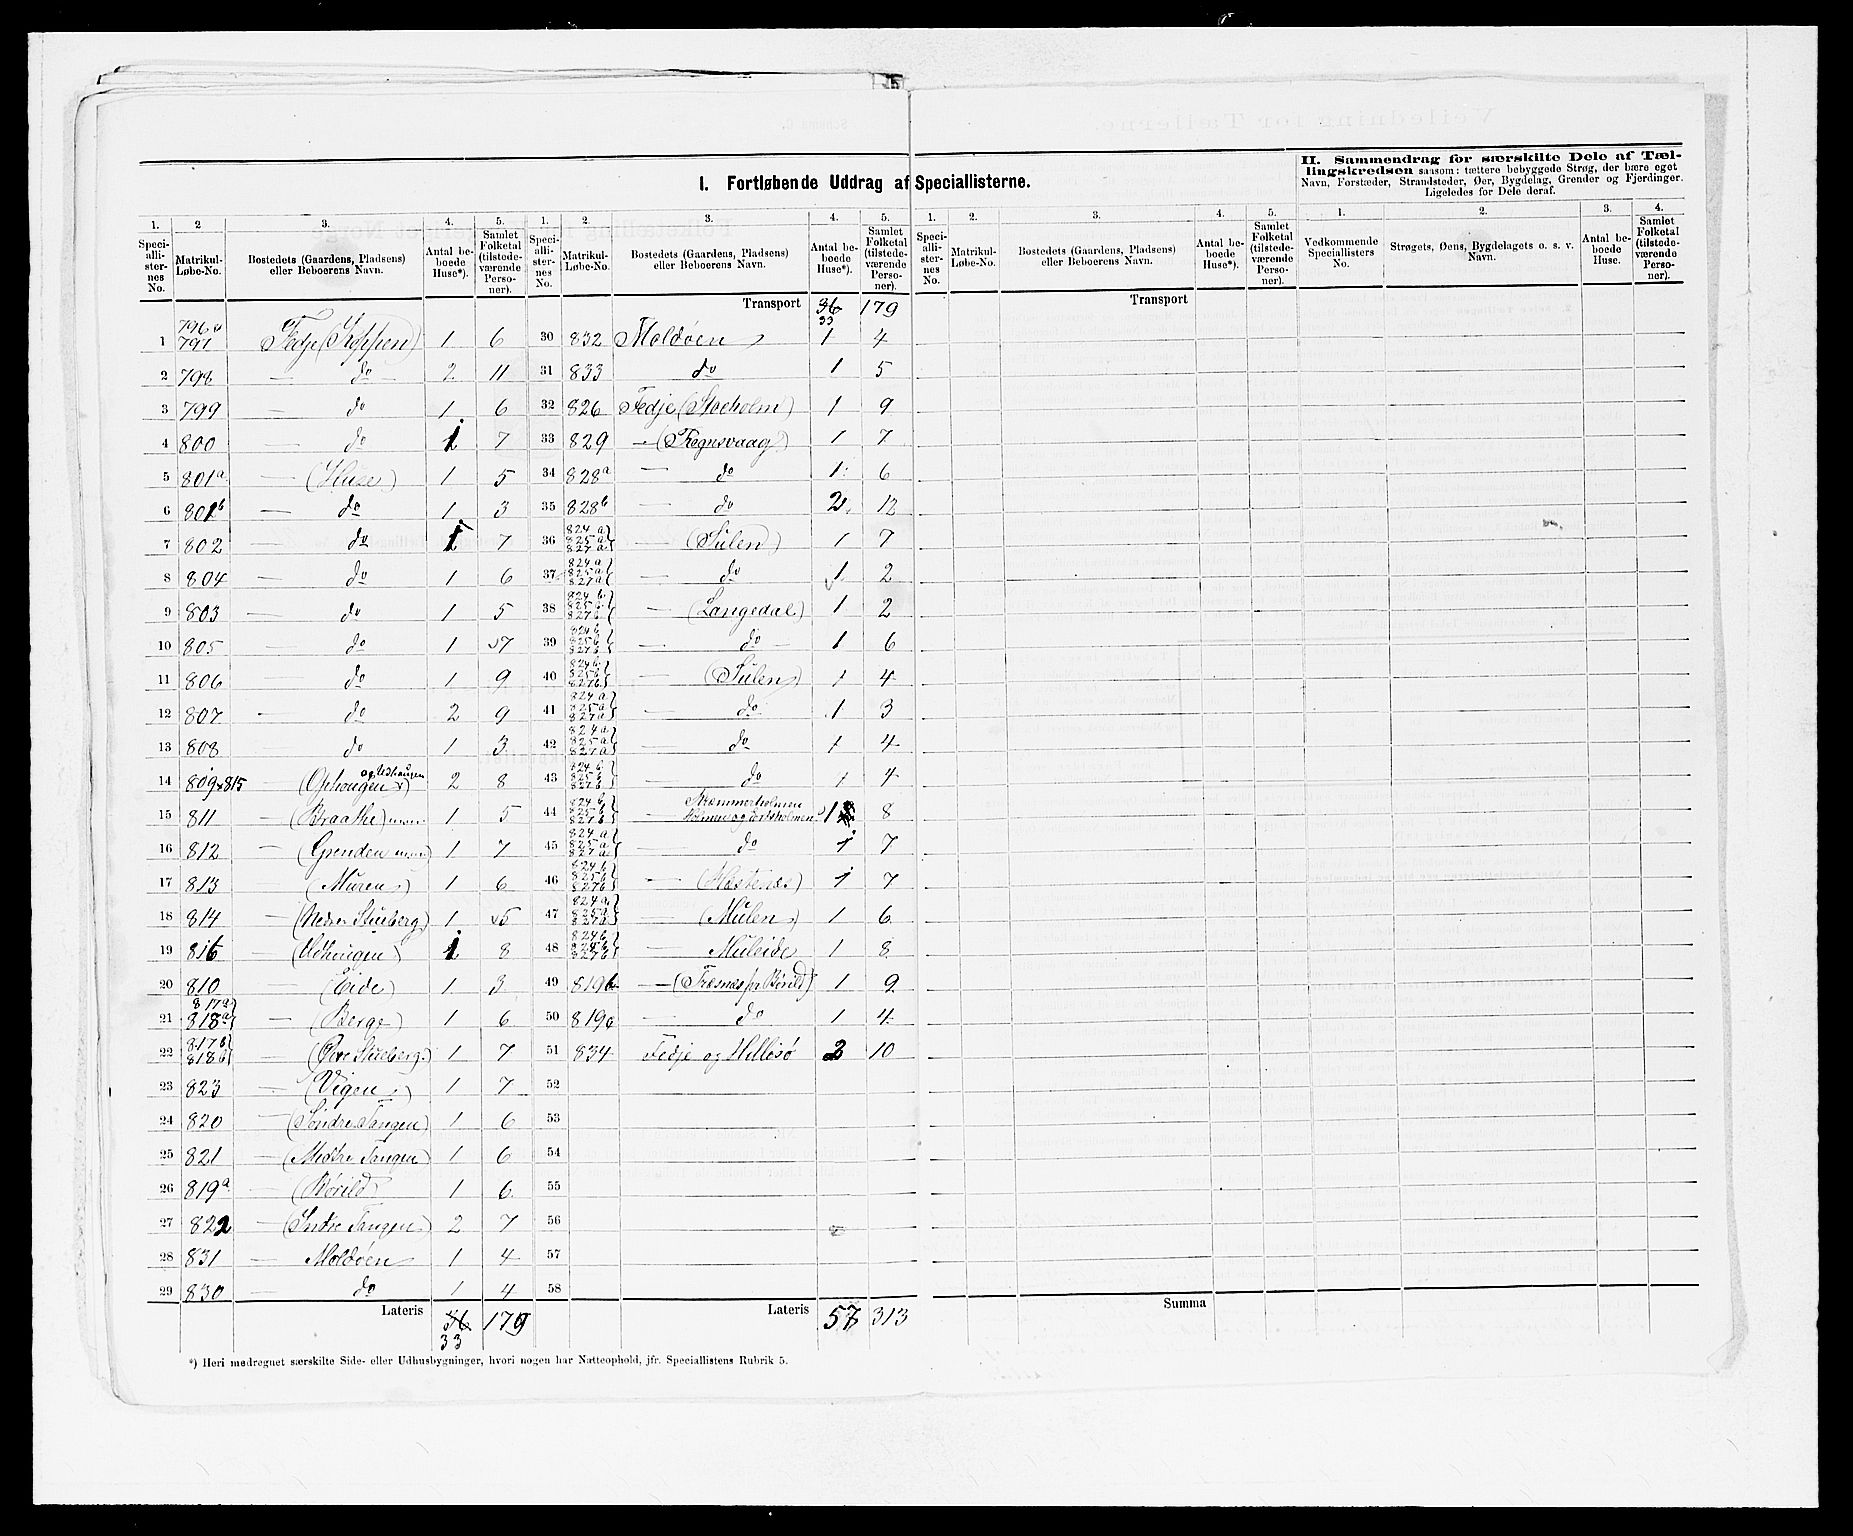 I. Fortløbende Uddrag af Speciallisterne.
II. Sammendrag for særskilte Dele af Tæl-
lingskredsen saasom: tættere bebyggede Strøg, der bære eget
Navn, Forstæder, Strandsteder, Øer, Bygdelag, Grender og Fjerdinger.
Ligeledes for Dele deraf.
1. 2 3. 4. 5. 1. 2. 3. 4. 5. 1. 2. 3. 4. 5. 1. 2. 3. 4.
Speci-allister-nes No. Matrikul-Løbe-No. Bostedets (Gaardens, Pladsens) eller Beboerens Navn. Antal be-boede Huse*). Samlet Folketal (tilstede-værende Perso-ner).
Speci-allister-nes No. Matrikul-Løbe-No. Bostedets (Gaardens, Pladsens) eller Beboerens Navn. Antal be-boede Huse*). Samlet Folketal (tilstede-værende Perso-ner).
Speci-allister-nes No. Matrikul-Løbe-No. Bostedets (Gaardens, Pladsens) eller Beboerens Navn. Antal be-boede Huse*). Samlet Folketal (tilstede-værende Perso-ner).
Vedkommende Speciallisters No. Strøgets, Øens, Bygdelagets o. s. v. Navn. Antal be-boede Huse. Samlet Folketal (tilstede-værende Perso-ner).
Transport 36 33 179
Transport
1 796a 797 Fedje (Koppen) 1 6
2 798 — do 2 11
3 799 — do 1 6
4 800 — do 1 7
5 801a — (Huse) 1 5
6 801b — do 1 3
7 802 — do 1 7
8 804 — do 1 6
9 803 — do 1 5
10 805 do 1 7
11 806 — do 1 9
12 807 — do 2 9
13 808 — do 1 3
14 809 & 815 — (Ophougen og Udhaugen) 2 8
15 811 — (Braathe) 1 5
16 812 — (Grenden) 1 7
17 813 — (Muren) 1 6
18 814 — (Nedre Stueberg) 1 5
19 816 — (Udhougen) 1 8
20 810 — (Eide) 1 3
21 817a 818a — (Berge) 1 6
22 817b 818b — (Øvre Stueberg) 1 7
23 823 — (Vigen) 1 7
24 820 — (Søndre Tangen) 1 6
25 821 — (Midtre Tangen) 1 6
26 819a — (Børild) 1 6
27 822 — (Indre Tangen) 2 7
28 831 — Moldøen 1 4
29 830 — do 1 4
Lateris 36 33 179
30 832 Moldøen 1 4
31 833 do 1 5
32 826 Fedje (Stocholm) 1 9
33 829 — (Rognsvaag) 1 7
34 828a — do 1 6
35 828b — do 2 12
36 824a 825a 827a — (Sulen) 1 7
37 824a 825a 827a — do 1 2
38 824b 825b 827b — (Langedal) 1 2
39 824b 825b 827b — do 1 6
40 824b 825b 827b — (Sulen) 1 4
41 824a 825a 827a — do 1 3
42 824a 825a 827a — do 1 4
43 824b 825b 827b — do 1 4
44 824b 825b 827b Kræmmerholmen 1 8
45 824a 825a 827a — do 1 7
46 824b 825b 827b — 1 7
47 824a 825a 827a — (Mulen) 1 6
48 824b 825b 827b — Muleide 1 8
49 819b — (Træsnæs pr Børild) 1 9
50 819c — do 1 4
51 834 Fedje og Hillesø 2 10
52
53
54
55
56
57
58
Lateris 57 313
Summa
*) Heri medregnet særskilte Side- eller Udhusbygninger, hvori nogen har Natteophold, jfr. Speciallistens Rubrik 5.